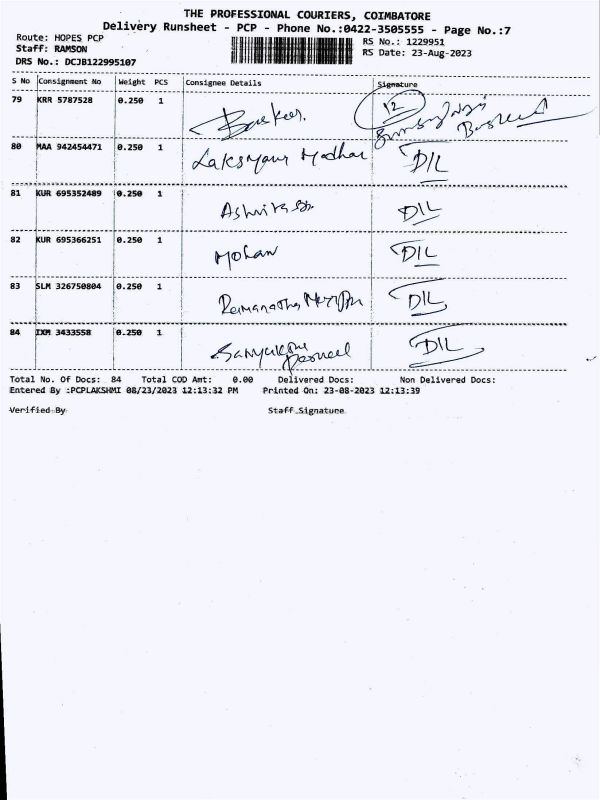 THE PROFESSIONAL COURIERS, COIMBATORE
Delivery Runsheet - PCP - Phone No.:0422-3505555 - Page No.:7
Route: HOPES PCP RS No.: 1229951
Staff: RAMSON RS Date: 23-Aug-2023
DRS No.: DCJB122995107
S No Consignment No Weight PCS Consignee Details Signature
79 KRR 5787528 0.250 1 12
80 MAA 942454471 0.250 1 D/L
81 KUR 695352489 0.250 1 D/L
82 KUR 695366251 0.250 1 Mohan D/L
83 SLM 326750804 0.250 1 D/L
84 IXM 3433558 0.250 1 D/L
Total No. Of Docs: 84 Total COD Amt: 0.00 Delivered Docs: Non Delivered Docs:
Entered By :PCPLAKSHMI 08/23/2023 12:13:32 PM Printed On: 23-08-2023 12:13:39
Verified By Staff Signature